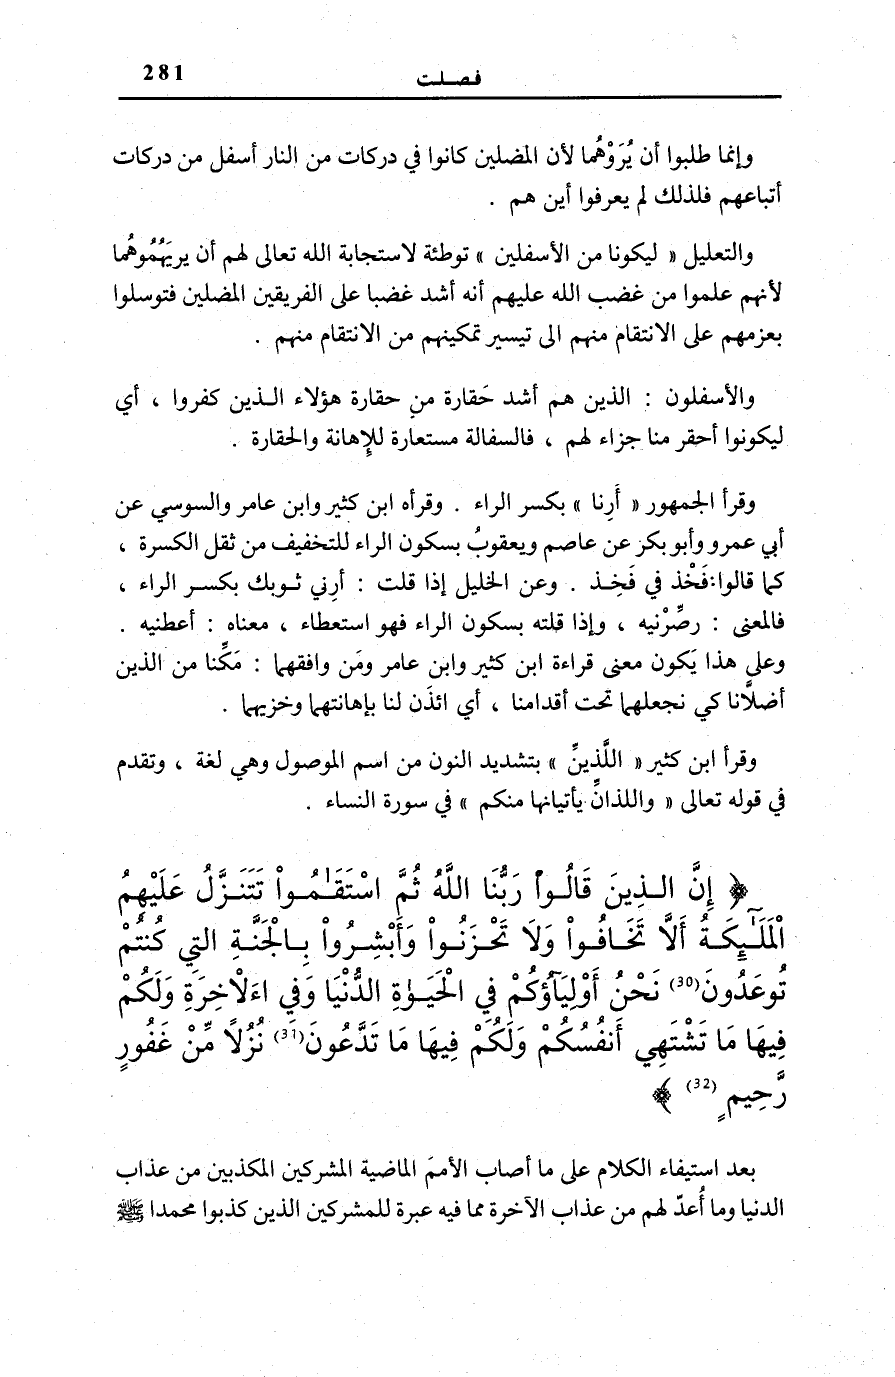 281
فصلت
وإنما طلبوا أن يُرَوْهُما لأن المضلين كانوا في دركات من النار أسفل من دركات
أتباعهم فلذلك لم يعرفوا أين هم .
والتعليل « ليكونا من الأسفلين » توطئة لاستجابة الله تعالى لهم أن يريَهُمُوهُما
لأنهم علموا من غضب الله عليهم أنه أشد غضبا على الفريقين المضلين فتوسلوا
بعزمهم على الانتقام منهم الى تيسير تمكينهم من الانتقام منهم .
والأسفلون : الذين هم أشد حَقارة من حقارة هؤلاء الـذين كفروا ، أي
ليكونوا أحقر منا جزاء لهم ، فالسفالة مستعارة للإهانة والحقارة .
وقرأ الجمهور « أَرِنا » بكسر الراء . وقرأه ابن كثير وابن عامر والسوسي عن
أبي عمرو وأبو بكر عن عاصم ويعقوبُ بسكون الراء للتخفيف من ثقل الكسرة ،
كما قالوا:فَخْذ في فَخِـذ . وعن الخليل إذا قلت : أرِني ثـوبك بكسـر الراء ،
فالمعنى : بصِّرْنيه ، وإذا قلته بسكون الراء فهو استعطاء ، معناه : أعطنيه .
وعلى هذا يَكون معنى قراءة ابن كثير وابن عامر ومَن وافقهما : مَكِّنا من الذين
أضلاَّنا كي نجعلهما تحت أقدامنا ، أي ائذَن لنا بإهانتهما وخزيهما .
وقرأ ابن كثير « اللَّذينِّ » بتشديد النون من اسم الموصول وهي لغة ، وتقدم
في قوله تعالى « واللذانِّ يأتيانها منكم » في سورة النساء .
﴿ إِنَّ الـذِينَ قَالُـواْ رَبُّنَا اللَّهُ ثُمَّ اسْتَقَـٰمُـواْ تَتَنَـزَّلُ عَلَيْهِمُ
الْمَلَـٰٓئِكَـةُ أَلَّا تَخَـافُـواْ وَلَا تَحْـزَنُـواْ وَأَبْشِـرُواْ بِـالْجَنَّـةِ التِي كُنتُمْ
تُوعَدُونَ(30) نَحْنُ أَوْلِيَآؤُكُمْ فِي الْحَيَـوٰةِ الدُّنْيَا وَفِي اءَلْاخِرَةِ وَلَكُمْ
فِيهَا مَا تَشْتَهِي أَنفُسُكُمْ وَلَكُمْ فِيهَا مَا تَدَّعُونَ(31) نُزُلاً مِّنْ غَفُورٍ
رَّحِيمٍ (32) ﴾
بعد استيفاء الكلام على ما أصاب الأممَ الماضية المشركين المكذبين من عذاب
الدنيا وما أُعدّ لهم من عذاب الآخرة مما فيه عبرة للمشركين الذين كذبوا محمدا ﷺ